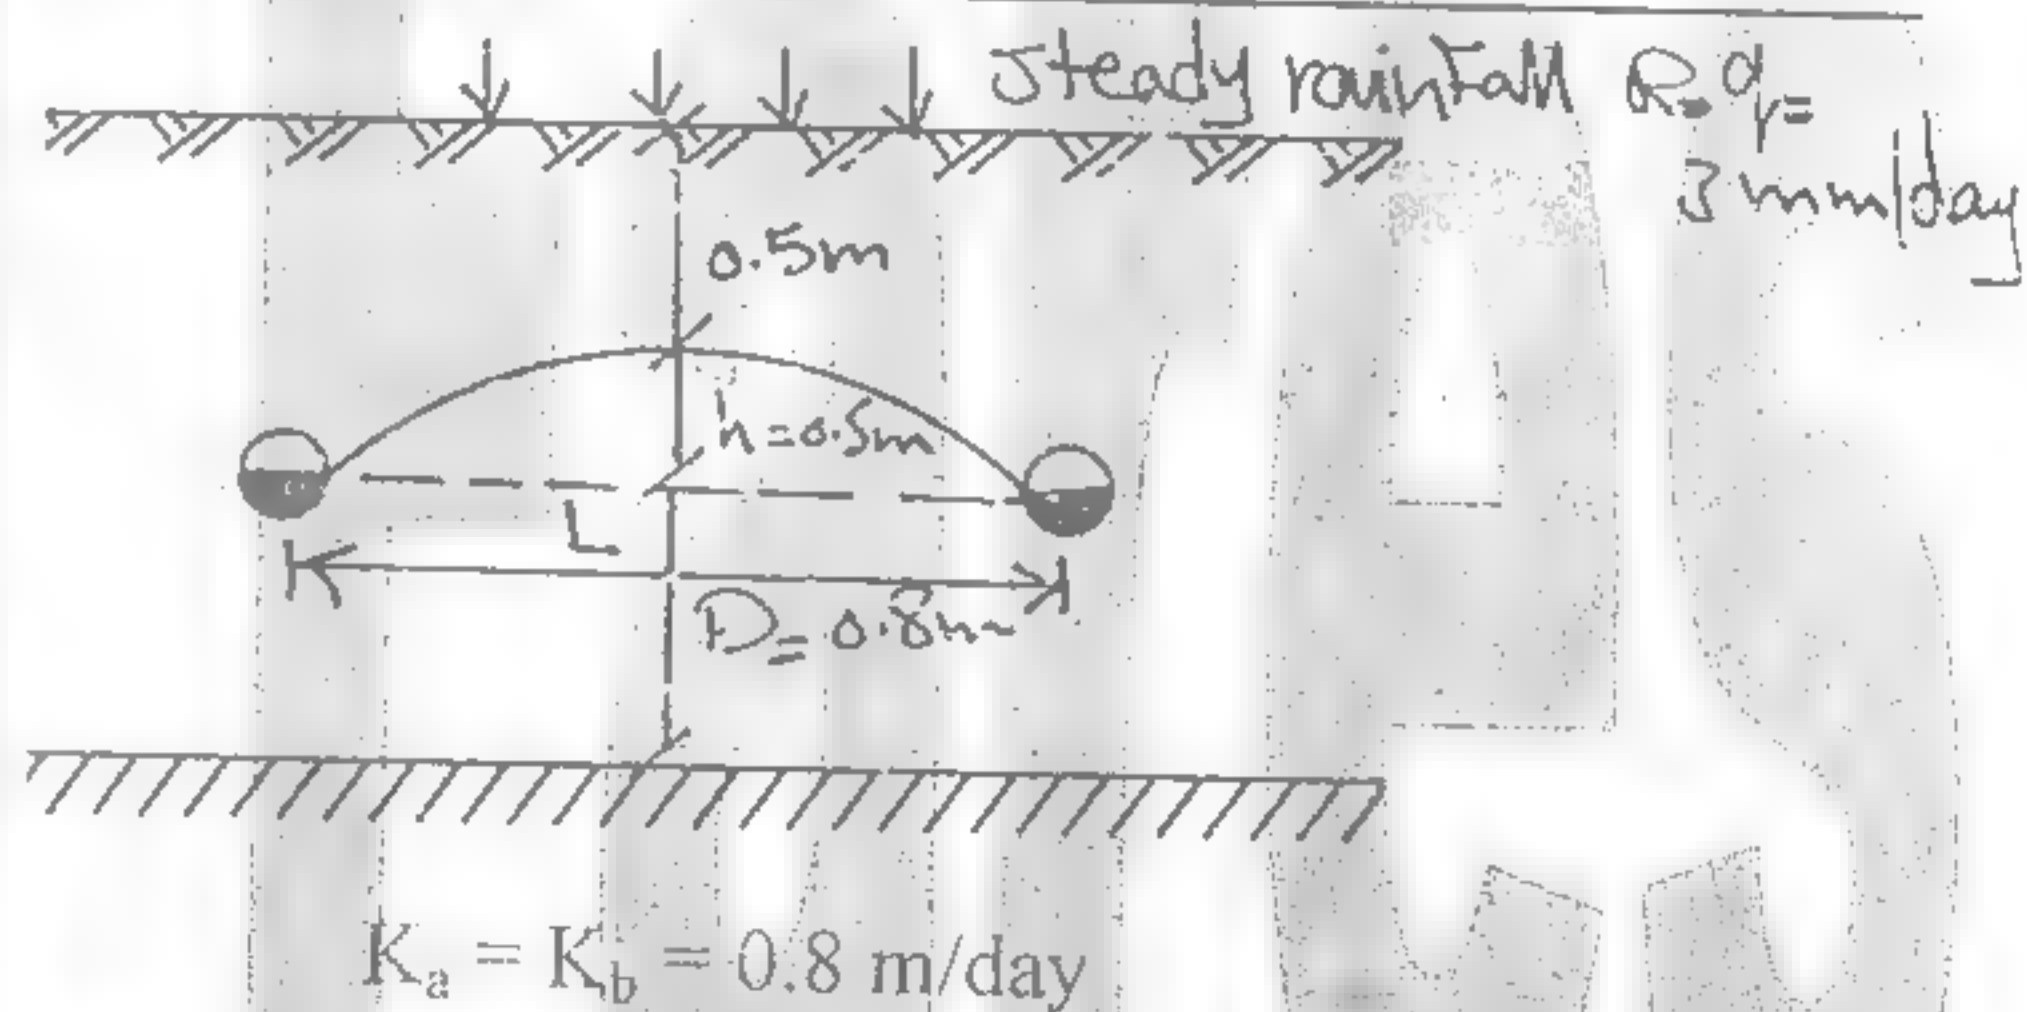 Steady rainfall R=q=
3 mm/day
0.5m
h=0.5m
L
D=0.8m
Ka = Kb = 0.8 m/day